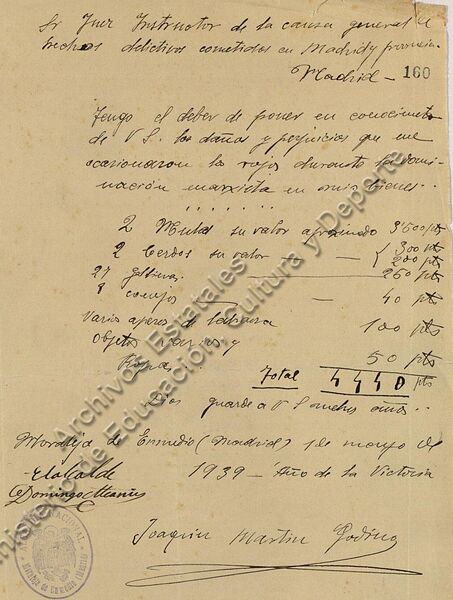 Sr Juez Instructor de la causa general de
hechos delictivos cometidos en Madrid y provincia
Madrid - 160
Tengo el deber de poner en conocimiento
de V S. los daños y perjuicios que me
ocasionaron los rojos durante la domi-
nación marxista en mis bienes..
2 Mulas su valor aproximado 3'500 pts
2 Cerdos su valor - 300 pts
200 pts
27 gallinas. 260 pts
8 conejos - 40 pts
Varios aperos de labranza 100 pts
Objetos varios y
Ropa. 50 pts
Total 4440 pts
Dios guarde a V S muchos años..
Moraleja de Enmedio (Madrid) 1 de mayo de
1939 - Año de la Victoria
El alcalde
Domingo
Joaquin Martin Godino
Archivos Estatales
Ministerio de Educación, Cultura y Deporte